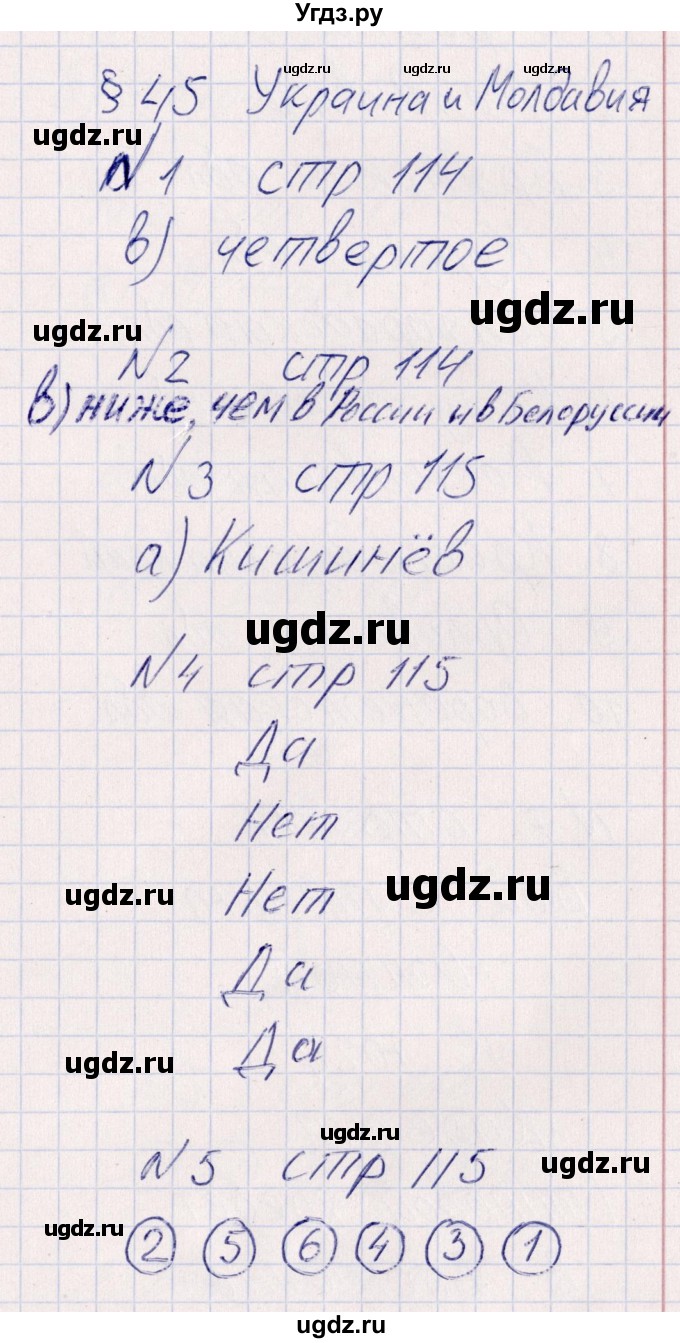 Угдз.ру
ugdz.ru ugdz.ru ugdz.ru
§ 45 Украина и Молдавия
ugdz.ru
№1 стр 114
в) четвертое
ugdz.ru
ugdz.ru
№2 стр 114
в) ниже, чем в России и в Белоруссии
№3 стр 115
а) Кишинёв
ugdz.ru
№4 стр 115
Да
Нет
ugdz.ru
Нет
ugdz.ru
Да
Да
ugdz.ru
ugdz.ru
№5 стр 115
ugdz.ru
ugdz.ru
2 5 6 4 3 1
ugdz.ru